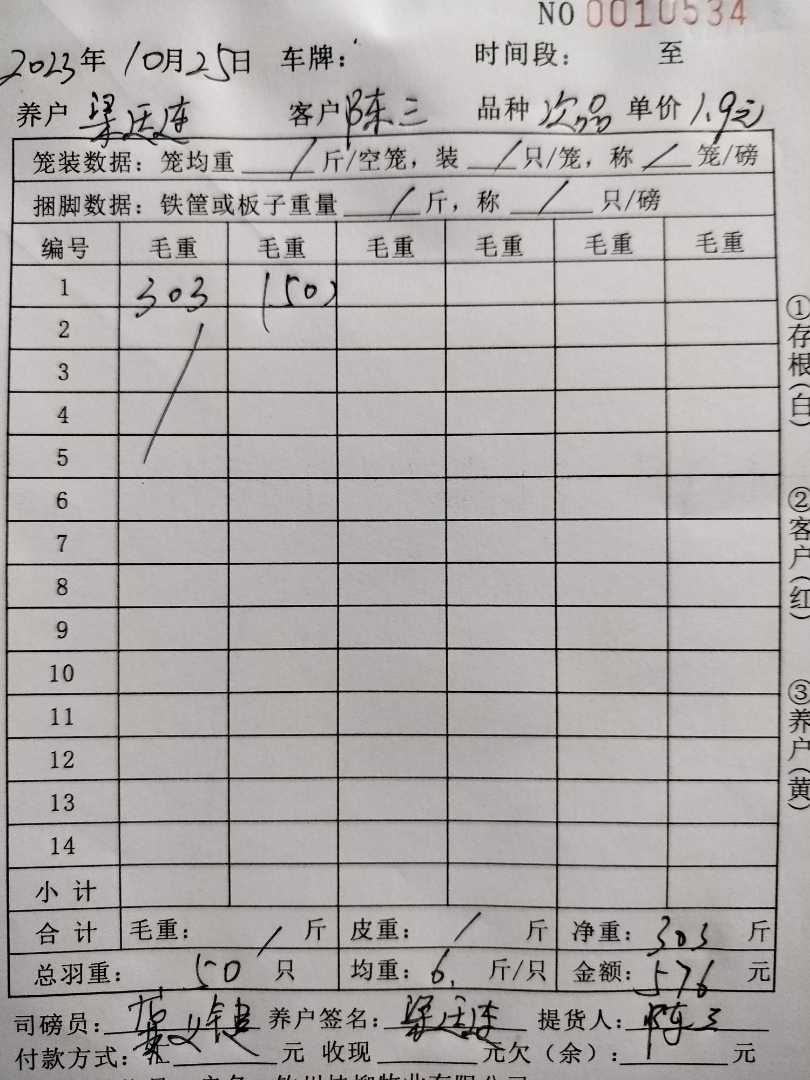 NO 0010534
2023年 10月25日 车牌： 时间段： 至
养户 梁廷连 客户 陈三 品种 次品 单价 1.9元
笼装数据：笼均重 / 斤/空笼，装 / 只/笼，称 / 笼/磅
捆脚数据：铁筐或板子重量 / 斤，称 / 只/磅
编号 毛重 毛重 毛重 毛重 毛重 毛重
1 303 (50)
2
3
4
5
6
7
8
9
10
11
12
13
14
小计
合计 毛重： / 斤 皮重： / 斤 净重：303 斤
总羽重： 50 只 均重：6. 斤/只 金额：576 元
司磅员： 养户签名：梁廷连 提货人：陈三
付款方式： 元 收现 元欠（余）： 元
①存根（白）
②客户（红）
③养户（黄）